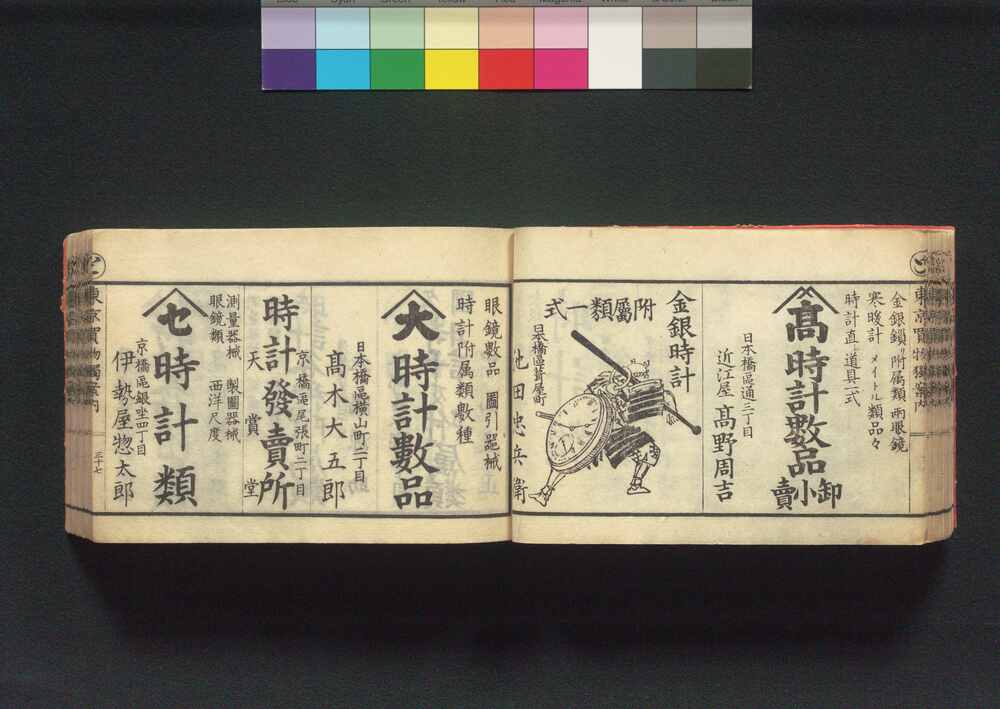 Cyan
Green
Yellow
Red
Magenta
White
Black
東京買物獨案内
金銀鎖リ附属類 兩眼鏡
寒暖計 メイトル類品々
時計直シ道具一式
髙 時計數品 卸小賣
日本橋區通三丁目
近江屋 髙野周吉
金銀時計
附屬類一式
池田忠兵衛
眼鏡數品 圖引噐械
時計附属類數種
大 時計數品
日本橋區横山町二丁目
髙木大五郎
時計發賣所
京橋區尾張町二丁目
天賞堂
測量器械 製圖器械
眼鏡類 西洋尺度
セ 時計類
京橋區銀座四丁目
伊勢屋惣太郎
東京買物獨案内
三十七